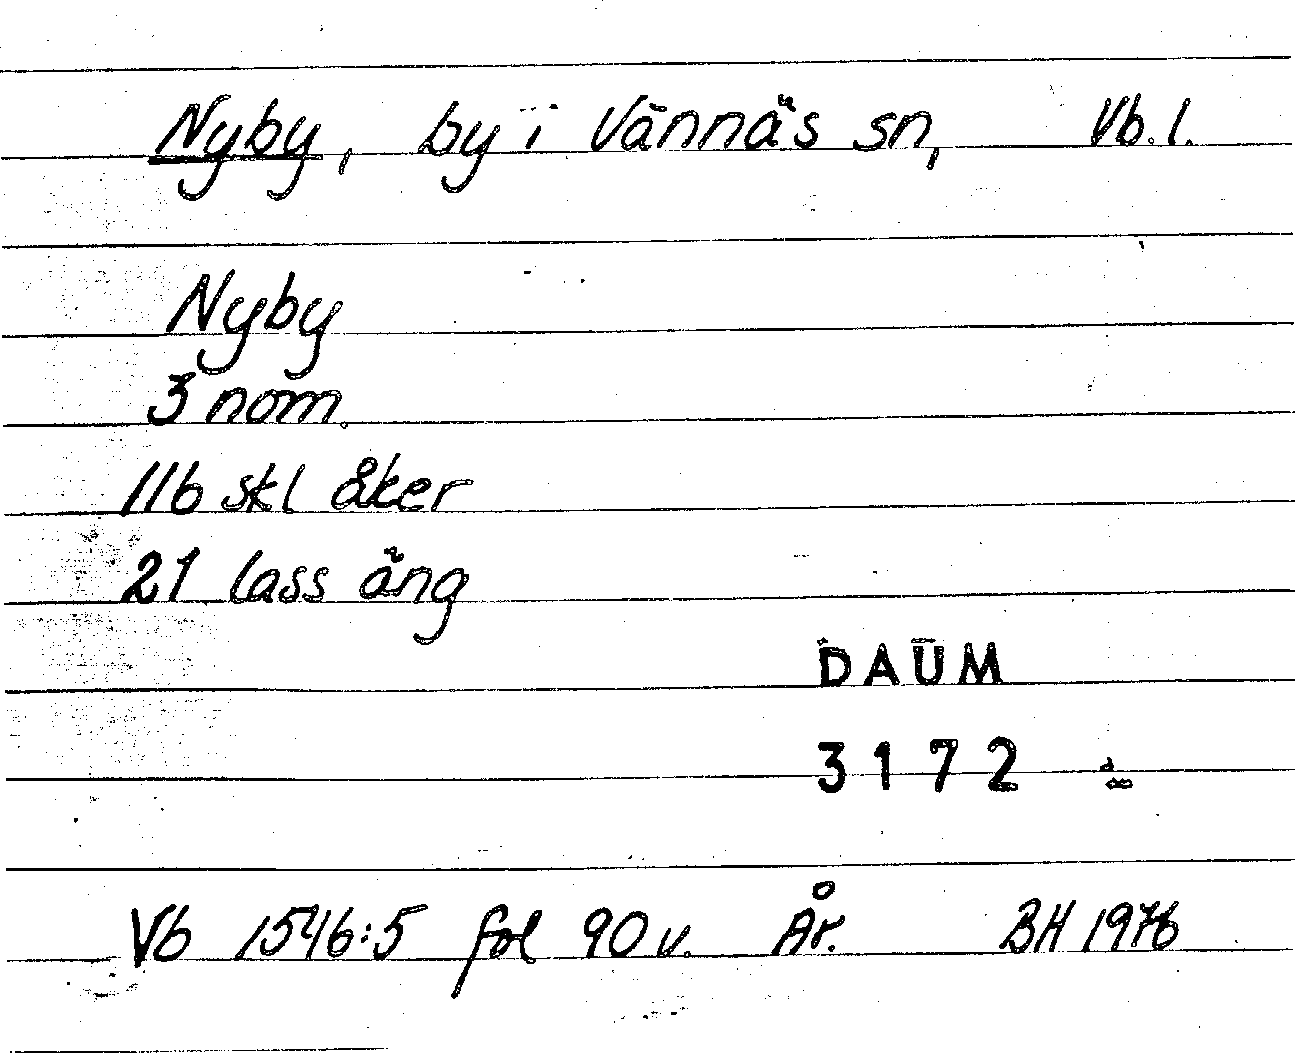 Nyby, by i Vännäs sn, Vb. l.
Nyby
3 nom.
116 skl åker
21 lass äng
DAUM
3172
Vb 1546:5 fol 90 v. År. BH 1976